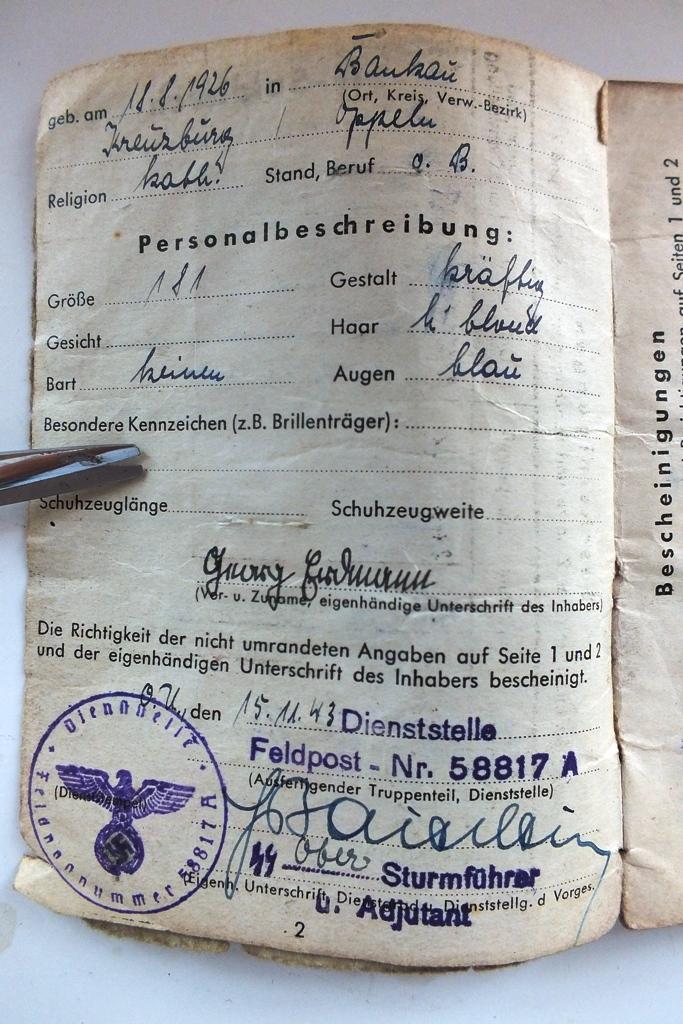 geb. am 18.8.1926 in Bankau
(Ort, Kreis, Verw.-Bezirk)
Kreuzburg / Oppeln
Religion kath. Stand, Beruf o. B.
Personalbeschreibung:
Größe 181 Gestalt kräftig
Gesicht Haar h' blond
Bart keinen Augen blau
Besondere Kennzeichen (z.B. Brillenträger):
Schuhzeuglänge Schuhzeugweite
Georg Erdmann
(Vor- u. Zuname, eigenhändige Unterschrift des Inhabers)
Die Richtigkeit der nicht umrandeten Angaben auf Seite 1 und 2
und der eigenhändigen Unterschrift des Inhabers bescheinigt.
O.U, den 15.11.43 Dienststelle
Feldpost - Nr. 58817 A
(Ausfertigender Truppenteil, Dienststelle)
(Dienststempel)
Dienststelle
Feldpostnummer 58817 A
ᛋᛋ Ober Sturmführer
(Eigenh. Unterschrift, Dienstgrad u. Dienststellg. d Vorges.
u. Adjutant
2
Bescheinigungen
auf Seiten 1 und 2